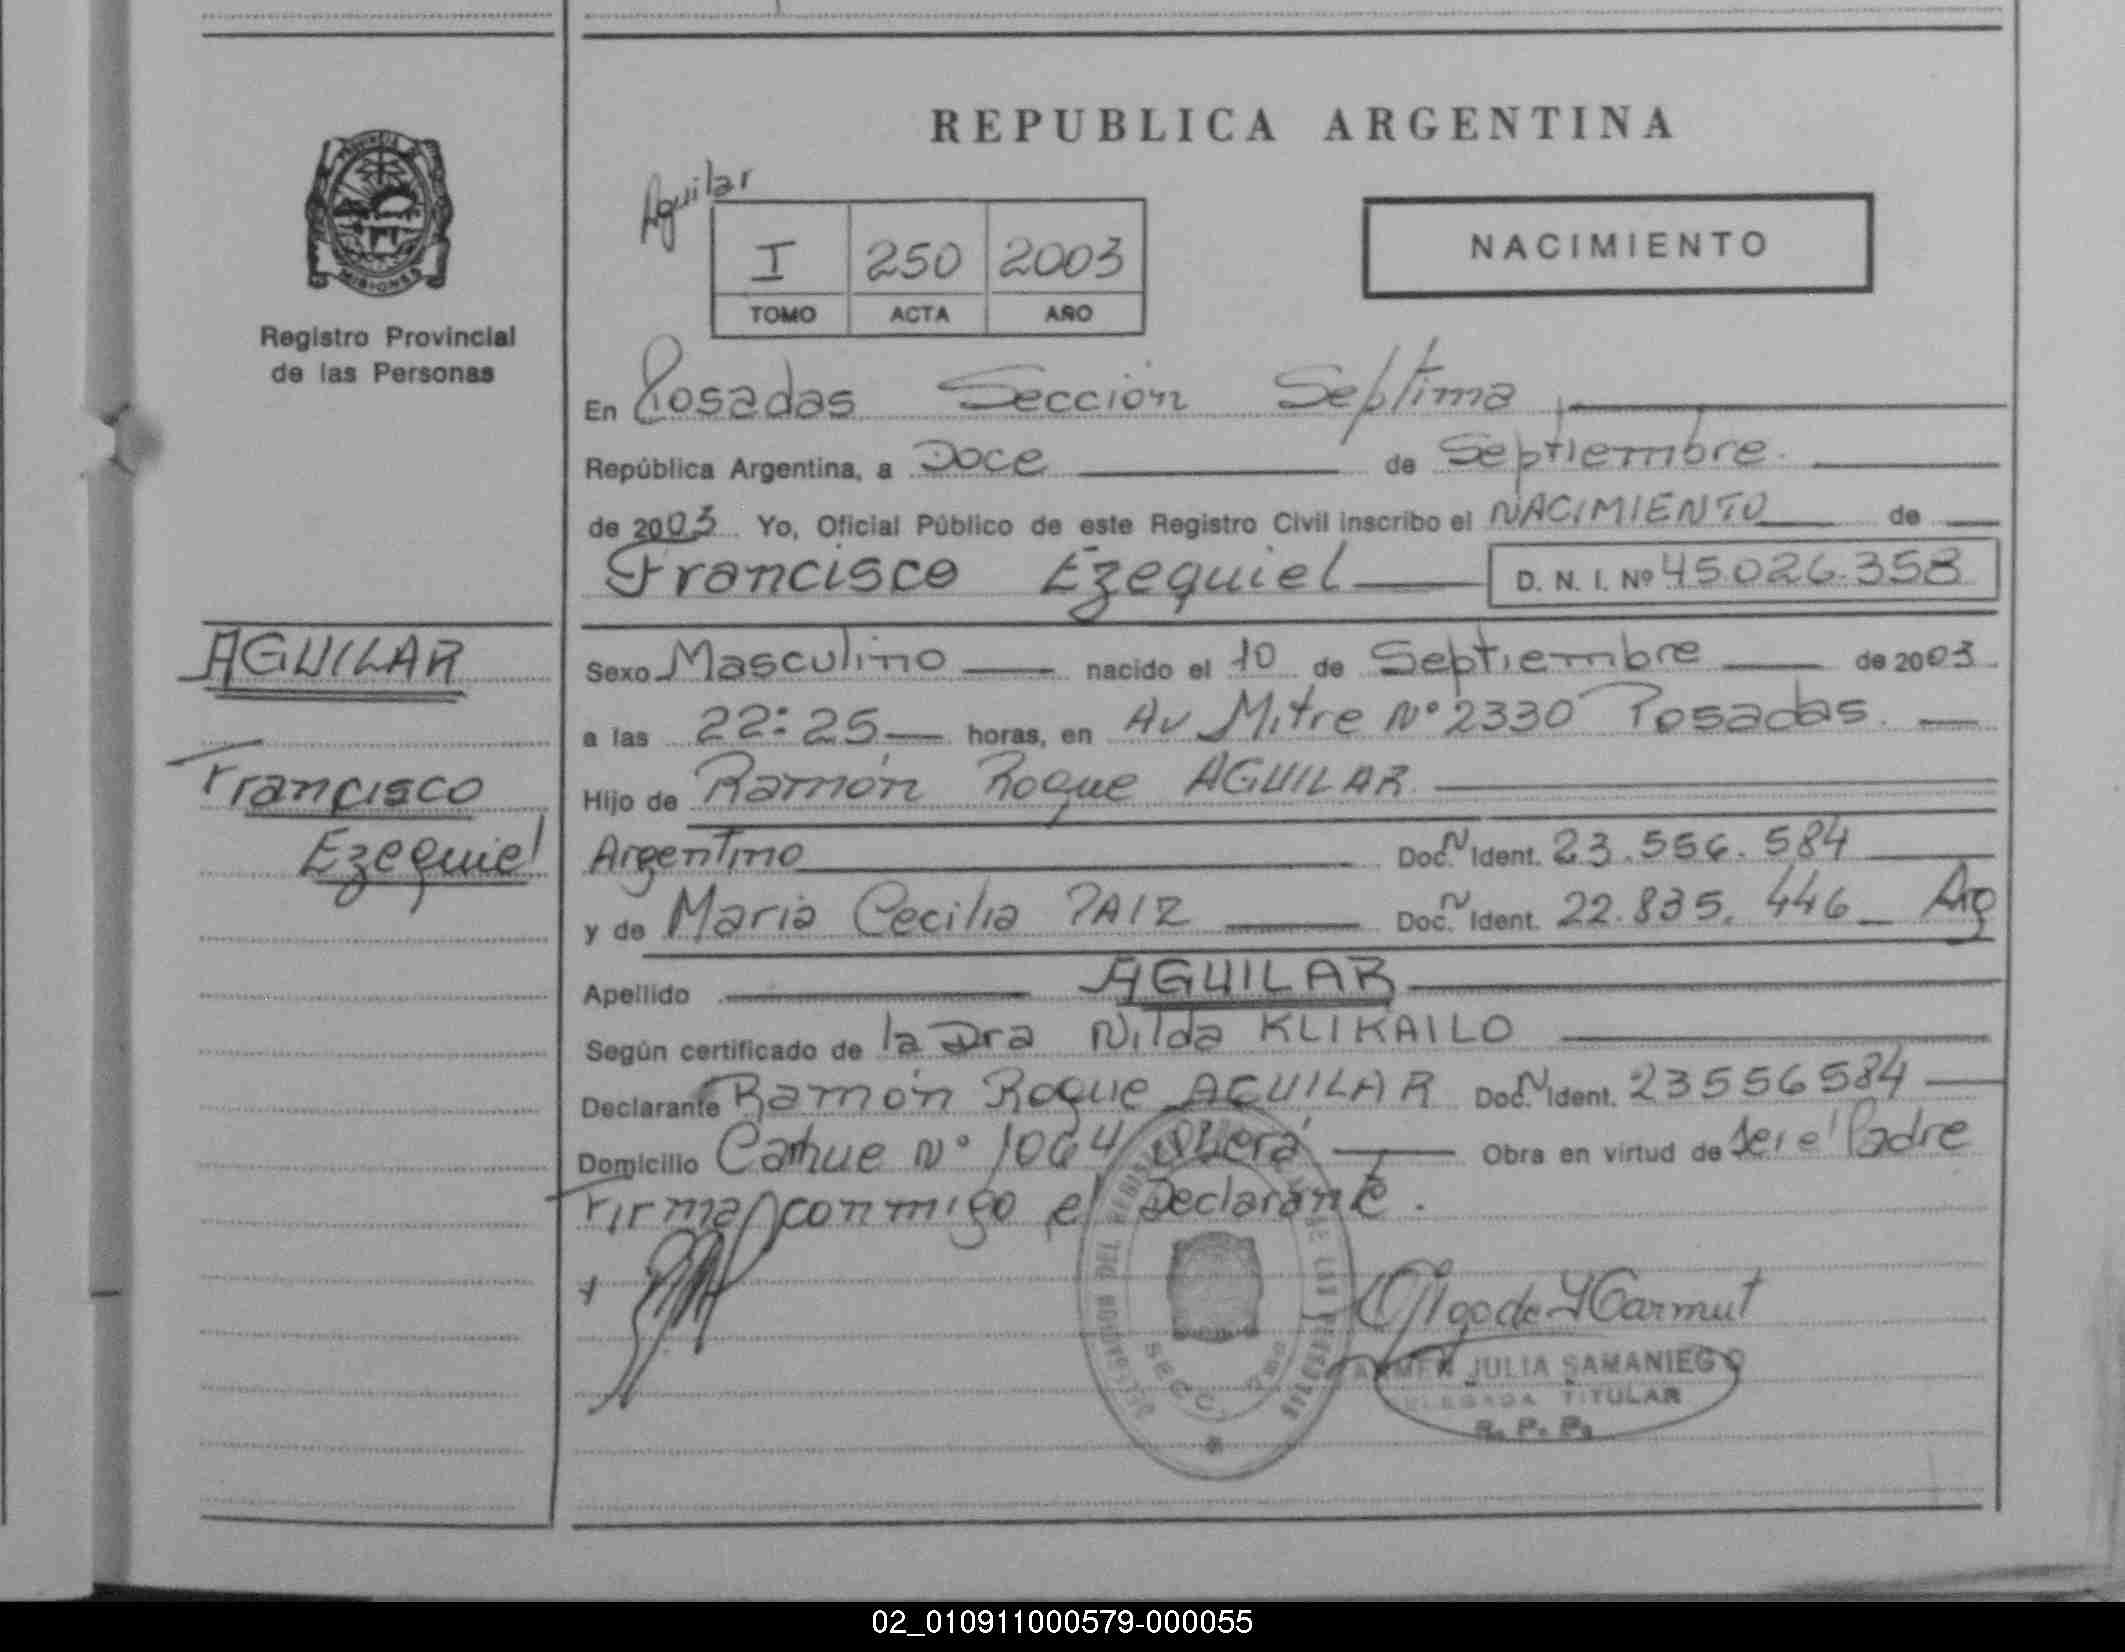 REPUBLICA ARGENTINA
PROVINCIA
MISIONES
Registro Provincial
de las Personas
Aguilar
I 250 2003
TOMO ACTA AÑO
NACIMIENTO
En Posadas Sección Septima
República Argentina, a Doce de Septiembre
de 2003 Yo, Oficial Público de este Registro Civil inscribo el NACIMIENTO de
Francisco Ezequiel D. N. I. Nº 45.026.358
AGUILAR
Francisco
Ezequiel
Sexo Masculino nacido el 10 de Septiembre de 2003
a las 22:25 horas, en Av Mitre Nº 2330 Posadas
Hijo de Ramón Roque AGUILAR
Argentino Doc. N Ident. 23.556.584
y de Maria Cecilia PAIZ Doc. N Ident. 22.835.446 Arg
Apellido AGUILAR
Según certificado de la Dra Nilda KLIKAILO
Declarante Ramón Roque AGUILAR Doc. N Ident. 23556584
Domicilio Nº 1064 Oberá Obra en virtud de ser el Padre
Firma conmigo el Declarante.
JULIA SAMANIEGO
DELEGADA TITULAR
R. P. P.
02_010911000579-000055